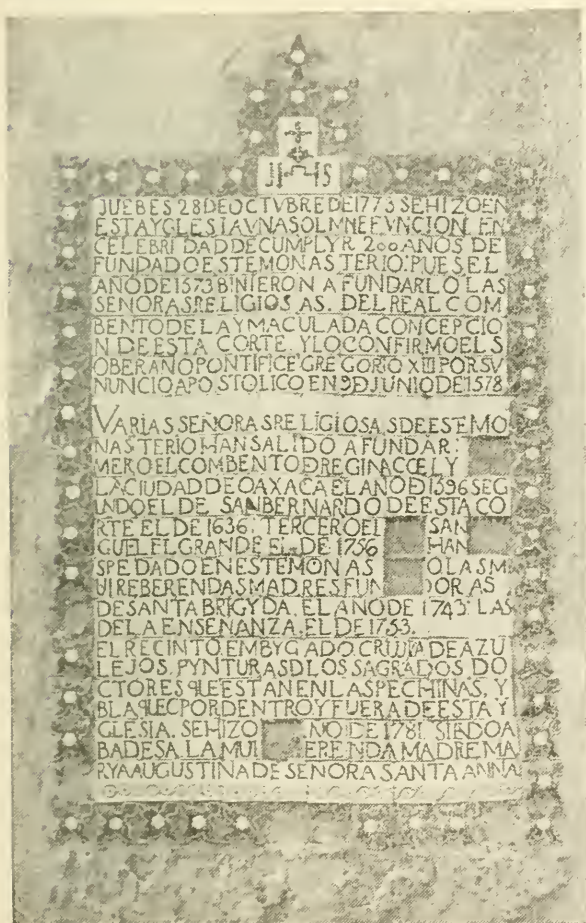 JHS
JUEBES 28 DE OCTVBRE DE 1773 SE HIZO EN
ESTA YGLESIA VNA SOLMNE FVNCION EN
CELEBRIDAD DE CUMPLYR 200 AÑOS DE
FUNDADO ESTE MONASTERIO: PUES EL
AÑO DE 1573 BINIERON A FUNDARLO LAS
SEÑORAS RELIGIOSAS. DEL REAL COM
BENTO DE LA YMACULADA CONCEPCIO
N DE ESTA CORTE. Y LO CONFIRMO EL S
OBERANO PONTIFICE GREGORIO XIII POR SV
NUNCIO APOSTOLICO EN 9 D JUNIO DE 1578
VARIAS SEÑORAS RELIGIOSAS DE ESTE MO
NASTERIO HAN SALIDO A FUNDAR:
MERO EL COMBENTO D REGINA CŒLY
LA CIUDAD DE OAXACA EL AÑO D 1596 SEG
UNDO EL DE SAN BERNARDO DE ESTA CO
RTE EL DE 1636. TERCERO EL SAN
GUEL EL GRANDE EL DE 1756 HAN
SPEDADO EN ESTE MONAS O LAS M
UI REBERENDAS MADRES FUN DORAS
DE SANTA BRIGYDA. EL AÑO DE 1743. LAS
DE LA ENSEÑANZA. EL DE 1753.
EL RECINTO. EMBYGADO. CRUJIA DE AZU
LEJOS. PYNTURAS D LOS SAGRADOS DO
CTORES QUE ESTAN EN LAS PECHINAS, Y
BLAQUEC POR DENTRO Y FUERA DE ESTA Y
GLESIA. SE HIZO NO DE 1781. SIEDO A
BADESA. LA MUI ERENDA MADRE MA
RYA AUGUSTINA DE SEÑORA SANTA ANNA